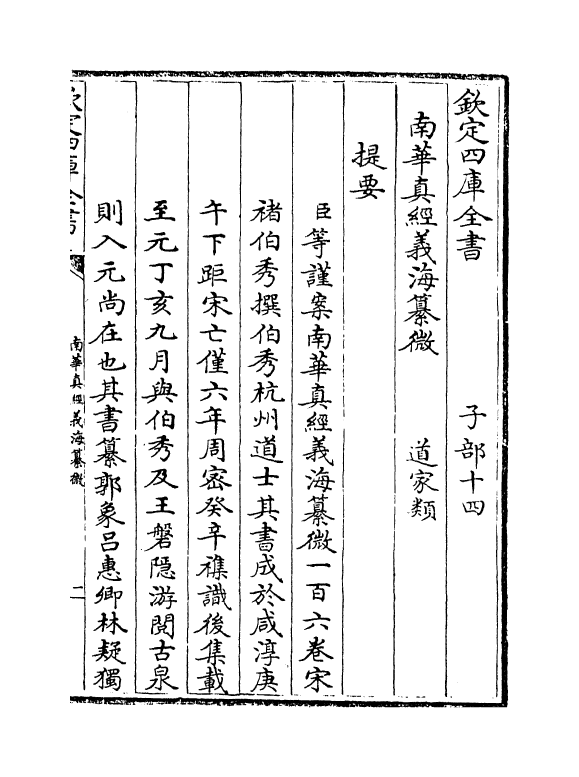 欽定四庫全書　子部十四
南華真經義海纂微　道家類
提要
臣等謹案南華真經義海纂微一百六卷宋
褚伯秀撰伯秀杭州道士其書成於咸淳庚
午下距宋亡僅六年周密癸辛襍識後集載
至元丁亥九月與伯秀及王磐隠游閱古泉
則入元尚在也其書纂郭象吕惠卿林疑獨
欽定四庫全書
南華真經義海纂微
二